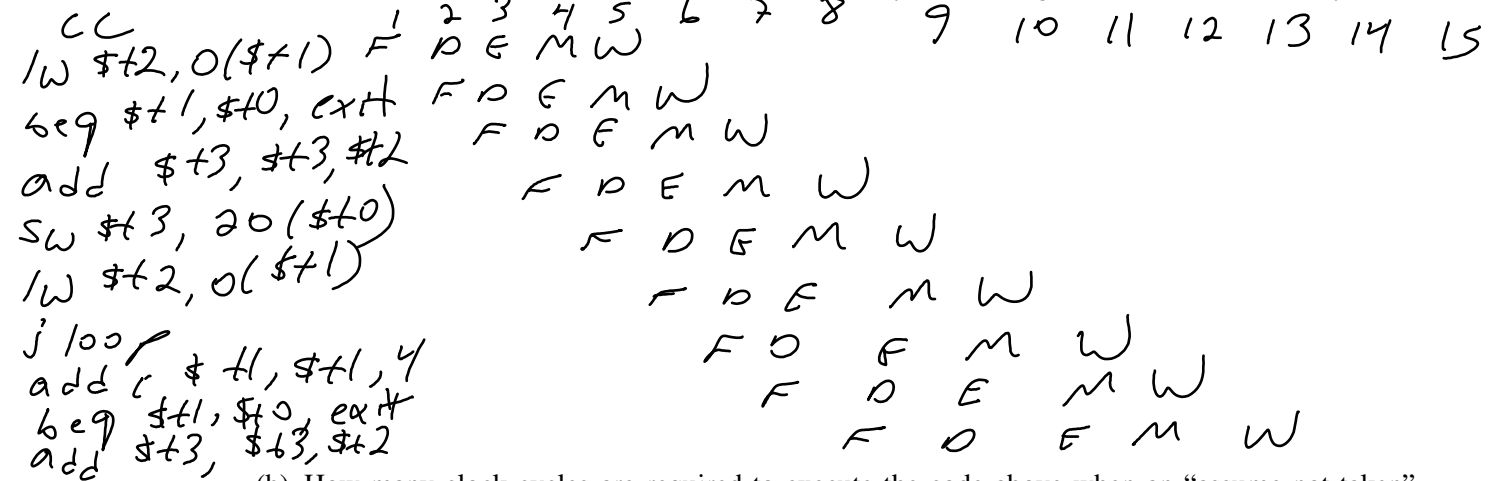 CC 1 2 3 4 5 6 7 8 9 10 11 12 13 14 15
lw $t2, 0($t1) F D E M W
beq $t1, $t0, exit F D E M W
add $t3, $t3, $t2 F D E M W
sw $t3, 20($t0) F D E M W
lw $t2, 0($t1) F D E M W
j loop F D E M W
addi $t1, $t1, 4 F D E M W
beq $t1, $t0, exit F D E M W
add $t3, $t3, $t2 F D E M W
(b) How many clock cycles are required to execute the code above when an "assume not taken"